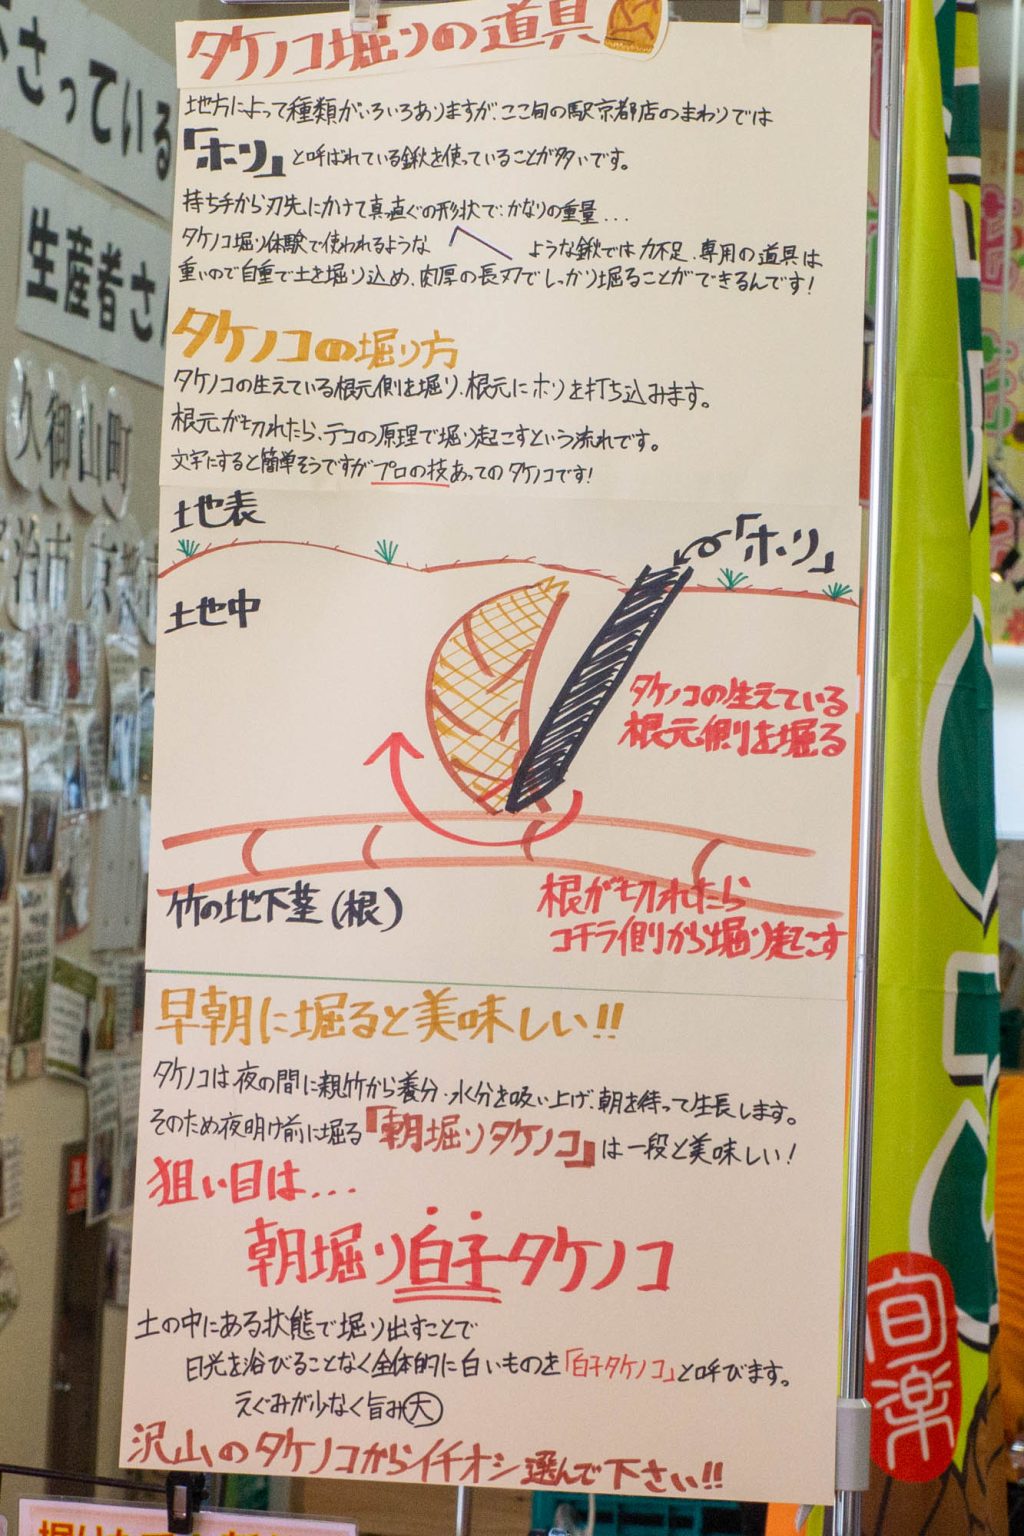 タケノコ堀りの道具
地方によって種類がいろいろありますが、ここ旬の駅京都店のまわりでは
「ホリ」と呼ばれている鍬を使っていることが多いです。
持ち手から刃先にかけて真っ直ぐの形状で、かなりの重量...
タケノコ堀り体験で使われるような ような鍬では力不足、専用の道具は
重いので自重で土を堀り込め、肉厚の長刃でしっかり堀ることができるんです!
タケノコの堀り方
タケノコの生えている根元側を堀り、根元にホリを打ち込みます。
根元が切れたら、テコの原理で堀り起こすという流れです。
文字にすると簡単そうですがプロの技あってのタケノコです!
土地表
「ホリ」
土地中
タケノコの生えている
根元側を堀る
竹の地下茎(根)
根が切れたら
コチラ側から堀り起こす
早朝に堀ると美味しい!!
タケノコは夜の間に親竹から養分、水分を吸い上げ、朝を待って生長します。
そのため夜明け前に堀る「朝堀りタケノコ」は一段と美味しい!
狙い目は...
朝堀り白子タケノコ
土の中にある状態で堀り出すことで
日光を浴びることなく全体的に白いものを「白子タケノコ」と呼びます。
えぐみが少なく旨み大
沢山のタケノコからイチオシ選んで下さい!!
さっている
生産者さん
久御山町
治市
京都
旬楽